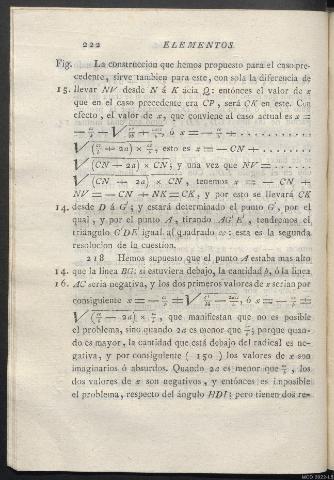 222 ELEMENTOS.
Fig. La construccion que hemos propuesto para el caso precedente,
sirve tambien para este, con sola la diferencia de
15. llevar NV desde N á K ácia Q: entónces el valor de x
que en el caso precedente era CP, será CK en este. Con
efecto, el valor de x, que conviene al caso actual es x =
esto es x = — CN +
√(CN + 2a) × CN; y una vez que NV =
√(CN + 2a) × CN, tenemos x = — CN +
NV = — CN + NK = CK, y por esto se llevará CK
14. desde D á G'; y estará determinado el punto G', por el
qual, y por el punto A, tirando AG'E', tendremos el
triángulo G'DE' igual al quadrado cc: esta es la segunda
resolucion de la cuestion.
218 Hemos supuesto que el punto A estaba mas alto
14. que la línea BG; si estuviera debajo, la cantidad b, ó la línea
16. AC sería negativa, y los dos primeros valores de x serían por
consiguiente
que manifiestan que no es posible
el problema, sino quando 2a es menor que
porque quando
es mayor, la cantidad que está debajo del radical es negativa,
y por consiguiente (150) los valores de x son
imaginarios ó absurdos. Quando 2a es menor que
los
dos valores de x son negativos, y entónces es imposible
el problema, respecto del ángulo HDI; pero tienen dos re-
MCD 2022-L5